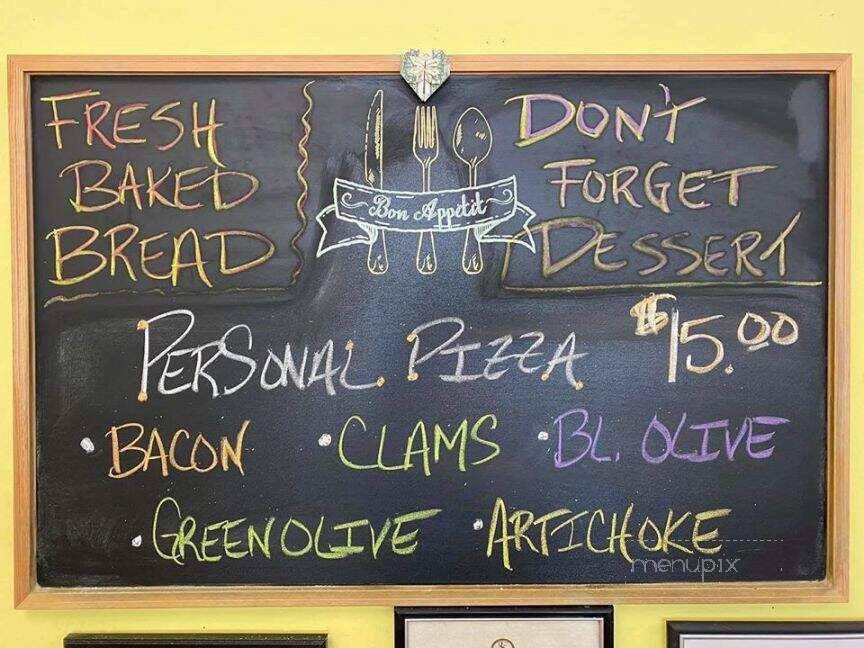 FRESH
BAKED
BREAD
Bon Appetit
DON'T
FORGET
DESSERT
PERSONAL PIZZA $15.00
• BACON • CLAMS • BL. OLIVE
• GREEN OLIVE • ARTICHOKE
menupix